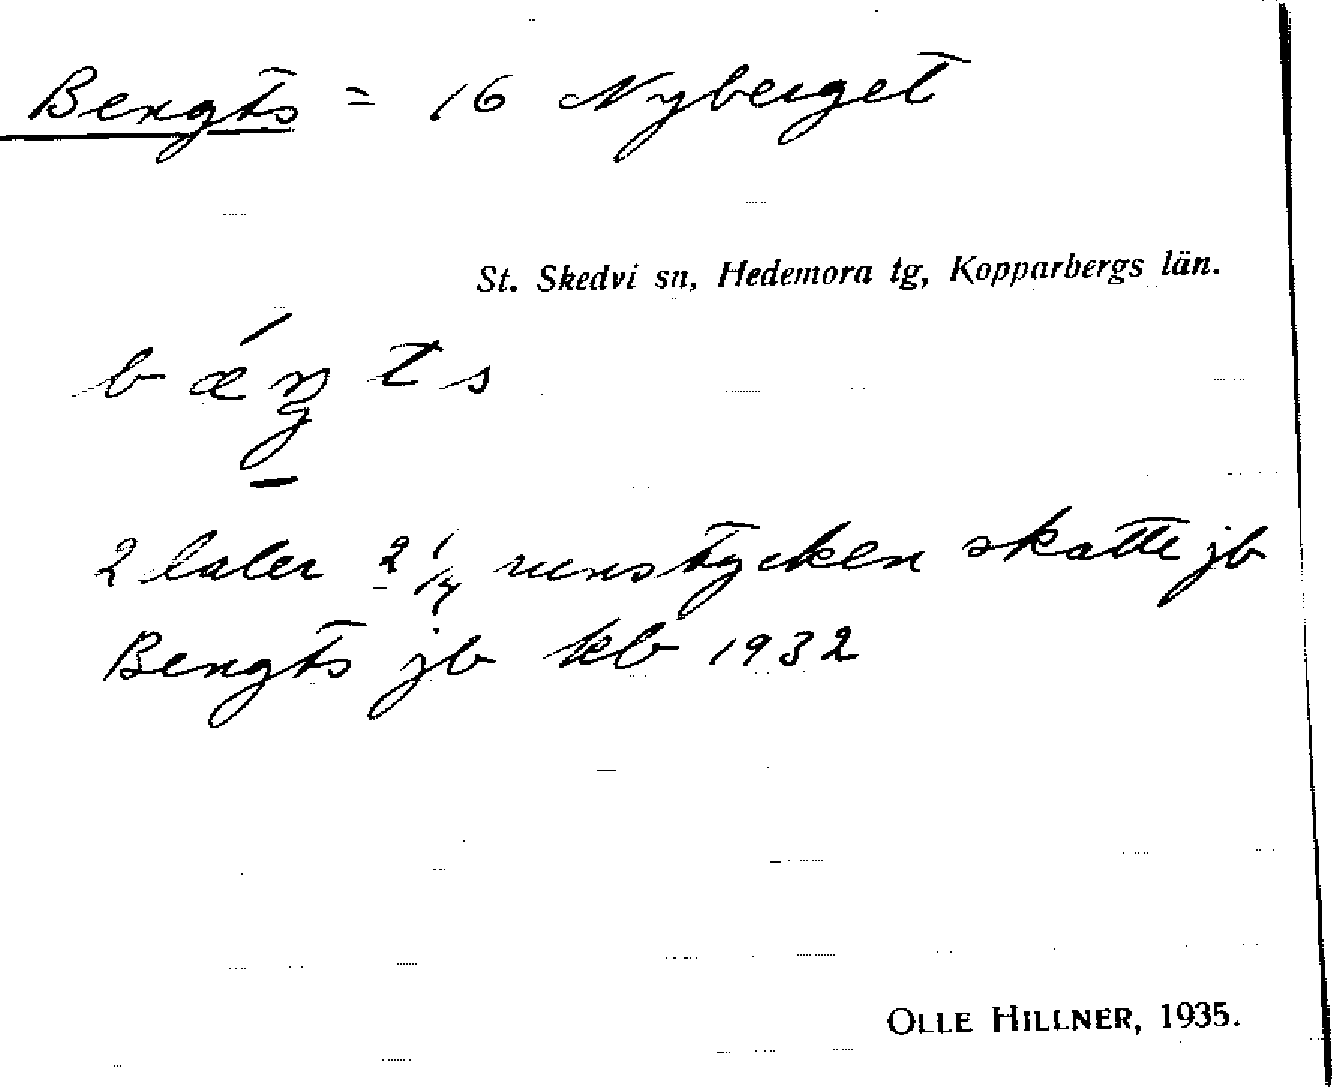 Bengts = 16 Nyberget
St. Skedvi sn, Hedemora tg, Kopparbergs län.
bǽŋts
2 laler 2 1/14 runstycken skatte jb
Bengts jb kb 1932
OLLE HILLNER, 1935.